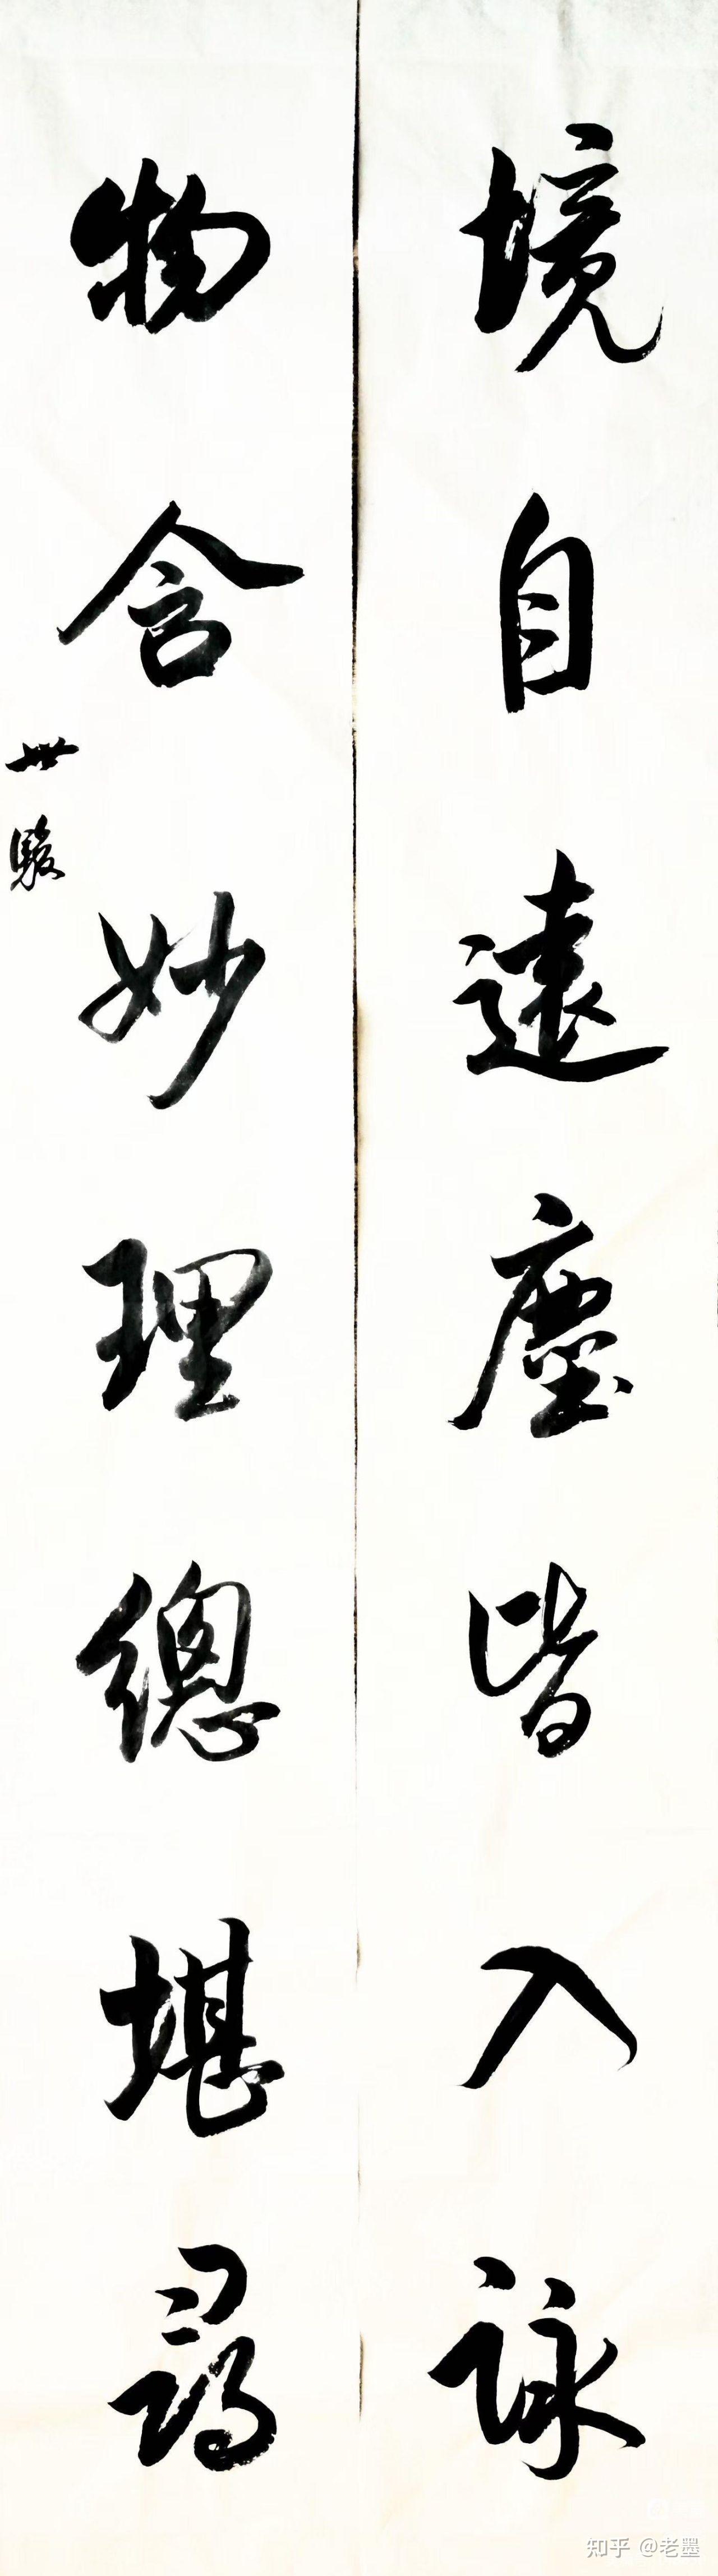 境自遠塵皆入詠
物含妙理總堪尋
世駿
知乎 @老墨